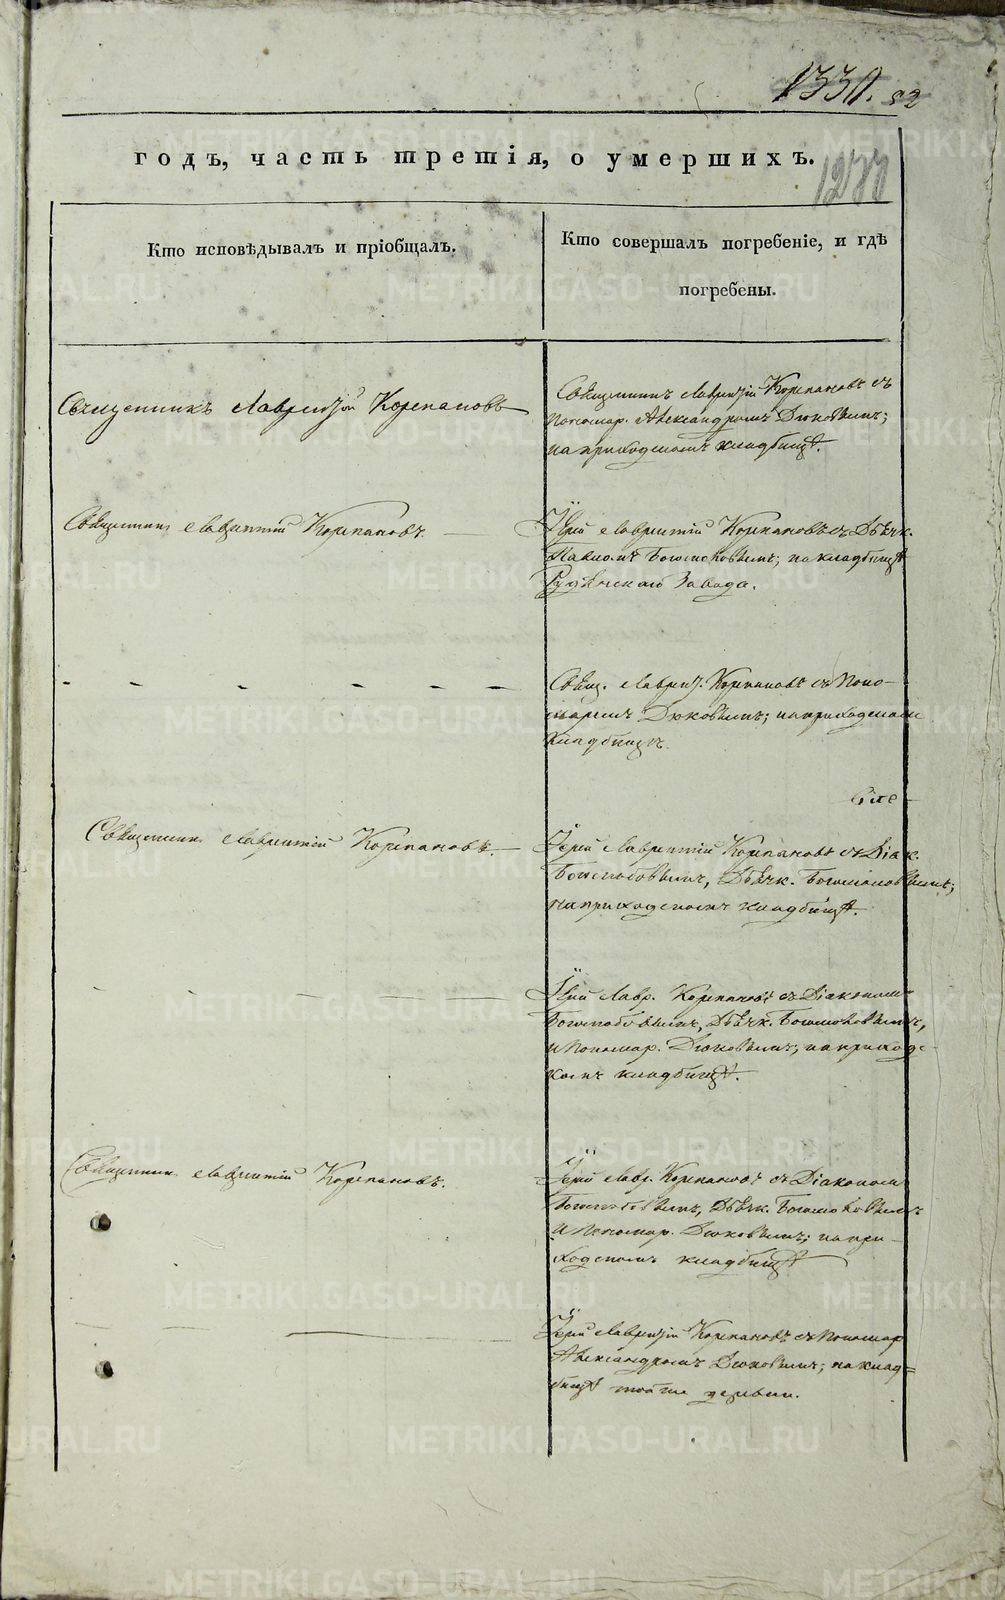 1331. 82
годъ, часть третія, о умершихъ.
1277
Кто исповѣдывалъ и пріобщалъ.
Кто совершалъ погребеніе, и гдѣ
погребены.
Священникъ Лаврентій Корепановъ
Священникъ Лаврентій Корепановъ съ
Пономар. Александромъ Дюковымъ;
на приходскомъ кладбищѣ.
Священник Лаврентій Корепановъ.
Іерей Лаврентій Корепановъ съ Дьячк.
кладбищѣ
Завода.
Свящ. Лаврен. Корепановъ съ Поно-
маремъ Дюковымъ; на приходском
кладбищѣ.
Священник Лаврентій Корепановъ.
Іерей Лаврентій Корепановъ съ Діак.
Дьячк.
на приходскомъ кладбищѣ.
Іерей Лавр. Корепановъ съ Діакономъ
Дьячк.
и Пономар. Дюковымъ; на приход-
скомъ кладбищѣ.
Священник Лаврентій Корепановъ.
Іерей Лавр. Корепановъ съ Діакономъ
Дьячк.
и Пономар. Дюковымъ; на при-
ходскомъ кладбищѣ
Іерей Лаврентій Корепановъ съ Пономар
Александромъ Дюковымъ; на клад=
бищѣ той же деревни.
METRIKI.GASO-URAL.RU